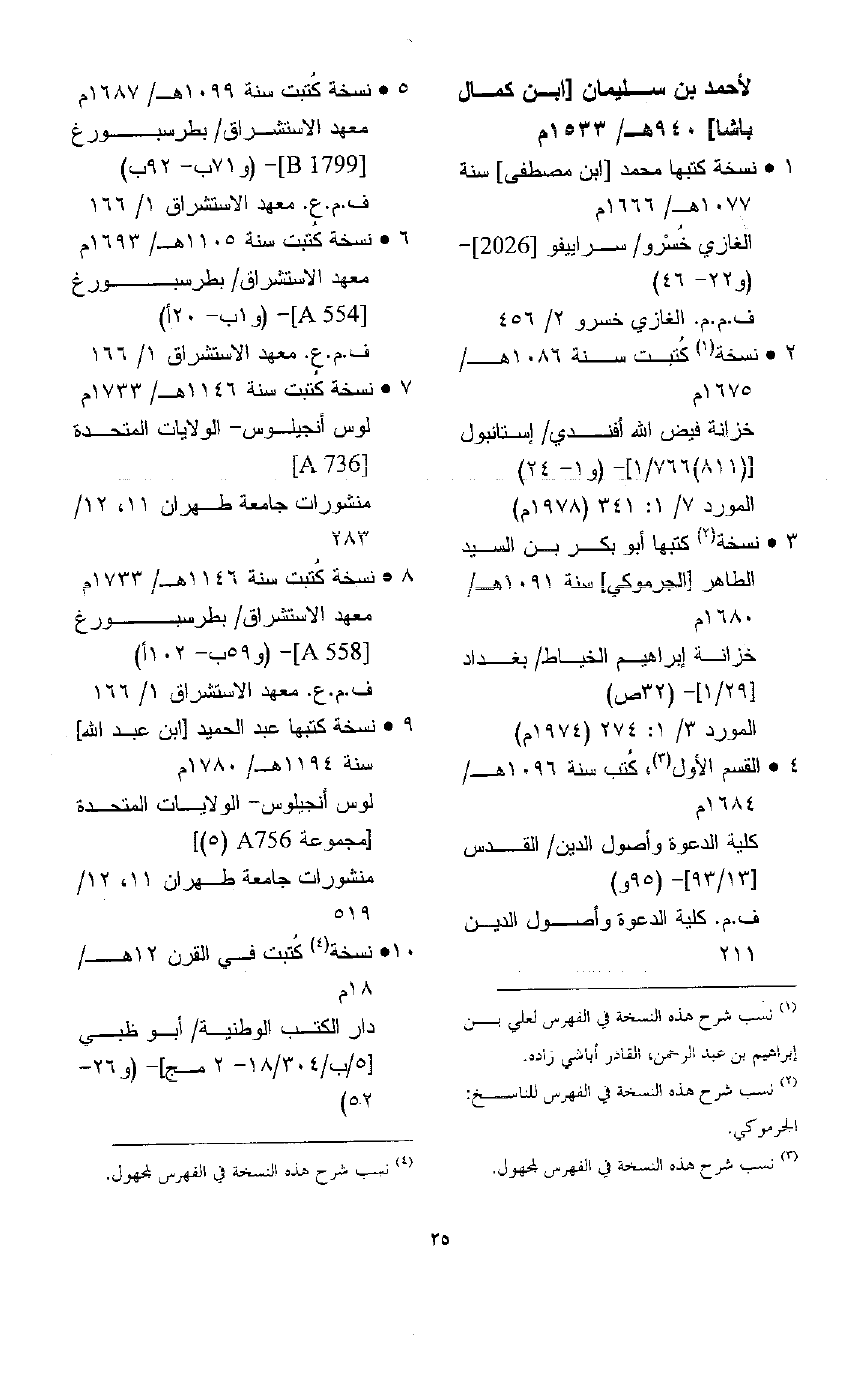 لأحمد بن سليمان [ابن كمال
باشا] ٩٤٠هـ/ ١٥٣٣م
١ • نسخة كتبها محمد [ابن مصطفى] سنة
١٠٧٧هـ/ ١٦٦٦م
الغازي خُسْرو/ سراييفو [2026]-
(و٢٢- ٤٦)
ف.م.م. الغازي خسرو ٢/ ٤٥٦
٢ • نسخة(١) كُتبت سنة ١٠٨٦هـ/
١٦٧٥م
خزانة فيض الله أفندي/ إستانبول
[(٨١١)١/٧٦٦]- (و١- ٢٤)
المورد ٧/ ١: ٣٤١ (١٩٧٨م)
٣ • نسخة(٢) كتبها أبو بكر بن السيد
الطاهر [الجرموكي] سنة ١٠٩١هـ/
١٦٨٠م
خزانة إبراهيم الخياط/ بغداد
[١/٢٩]- (٣٢ص)
المورد ٣/ ١: ٢٧٤ (١٩٧٤م)
٤ • القسم الأول(٣)، كُتب سنة ١٠٩٦هـ/
١٦٨٤م
كلية الدعوة وأصول الدين/ القدس
[٩٣/١٣]- (٩٥و)
ف.م. كلية الدعوة وأصول الدين
٢١١
(١) نسب شرح هذه النسخة في الفهرس لعلي بن
إبراهيم بن عبد الرحمن، القادر أباشي زاده.
(٢) نسب شرح هذه النسخة في الفهرس للناسخ:
الجرموكي.
(٣) نسب شرح هذه النسخة في الفهرس لمجهول.
٥ • نسخة كُتبت سنة ١٠٩٩هـ/ ١٦٨٧م
معهد الاستشراق/ بطرسبورغ
[B 1799]- (و٧١ب- ٩٢ب)
ف.م.ع. معهد الاستشراق ١/ ١٦٦
٦ • نسخة كُتبت سنة ١١٠٥هـ/ ١٦٩٣م
معهد الاستشراق/ بطرسبورغ
[A 554]- (و١ب- ٢٠أ)
ف.م.ع. معهد الاستشراق ١/ ١٦٦
٧ • نسخة كُتبت سنة ١١٤٦هـ/ ١٧٣٣م
لوس أنجيلوس- الولايات المتحدة
[A 736]
منشورات جامعة طهران ١١، ١٢/
٢٨٣
٨ • نسخة كُتبت سنة ١١٤٦هـ/ ١٧٣٣م
معهد الاستشراق/ بطرسبورغ
[A 558]- (و٥٩ب- ١٠٢أ)
ف.م.ع. معهد الاستشراق ١/ ١٦٦
٩ • نسخة كتبها عبد الحميد [ابن عبد الله]
سنة ١١٩٤هـ/ ١٧٨٠م
لوس أنجيلوس- الولايات المتحدة
[مجموعة A756 (٥)]
منشورات جامعة طهران ١١، ١٢/
٥١٩
١٠• نسخة(٤) كُتبت في القرن ١٢هـ/
١٨م
دار الكتب الوطنية/ أبو ظبي
[٥/ب/١٨/٣٠٤- ٢ مج]- (و٢٦-
٥٢)
(٤) نسب شرح هذه النسخة في الفهرس لمجهول.
٢٥